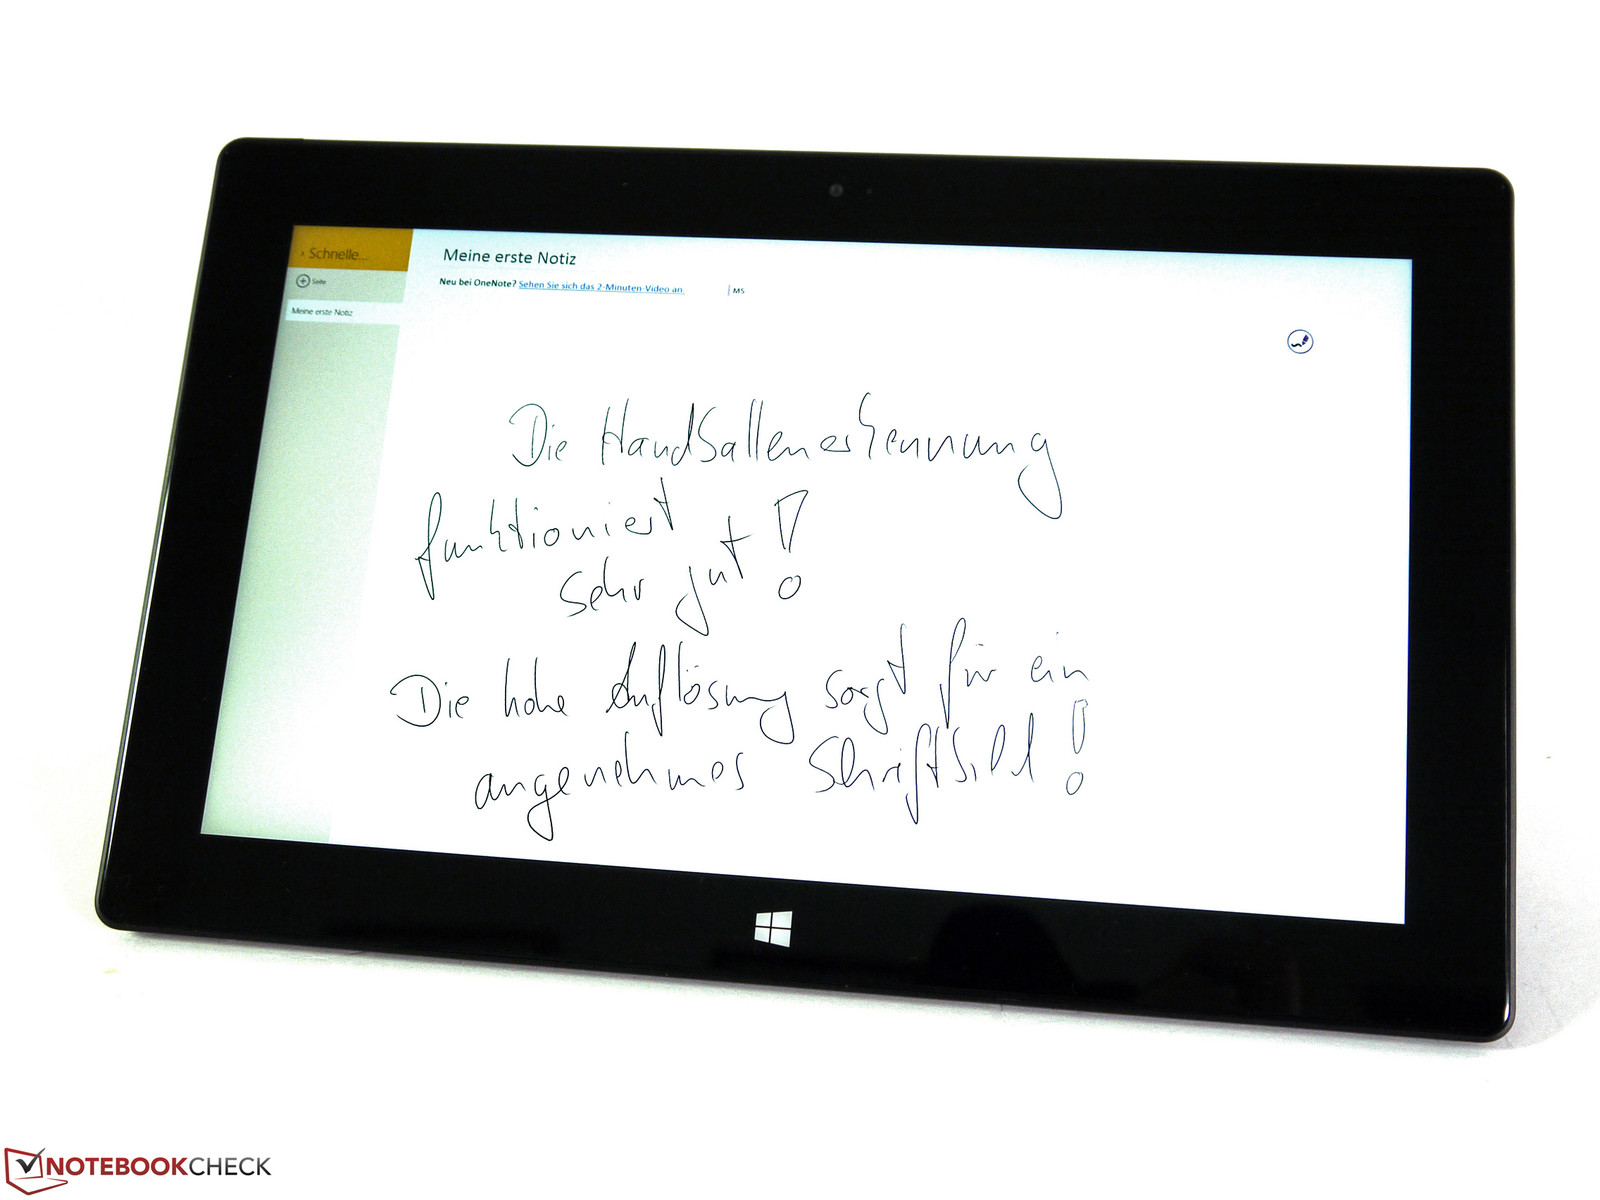 Schnelle...
Seite
Meine erste Notiz
Meine erste Notiz
Neu bei OneNote? Sehen Sie sich das 2-Minuten-Video an. | MS
Die Handballenerkennung
funktioniert
sehr gut!
Die hohe Auflösung sorgt für ein
angenehmes Schriftbild!
NOTEBOOKCHECK